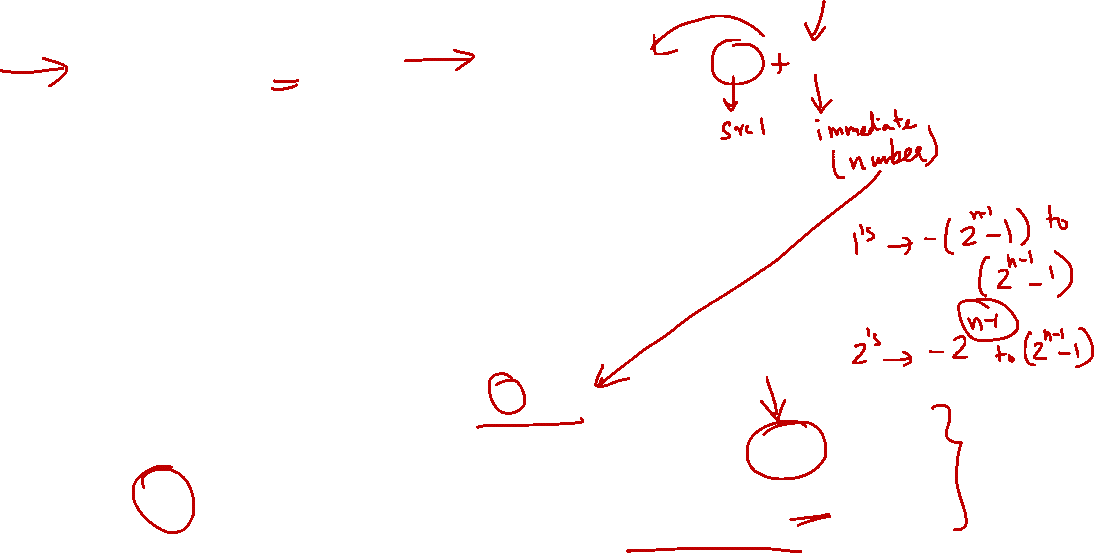 =
+
src1
immediate
(number)
1's → -(2^{n-1}-1) to
(2^{n-1}-1)
2's → -2^{n-1} to (2^{n-1}-1)